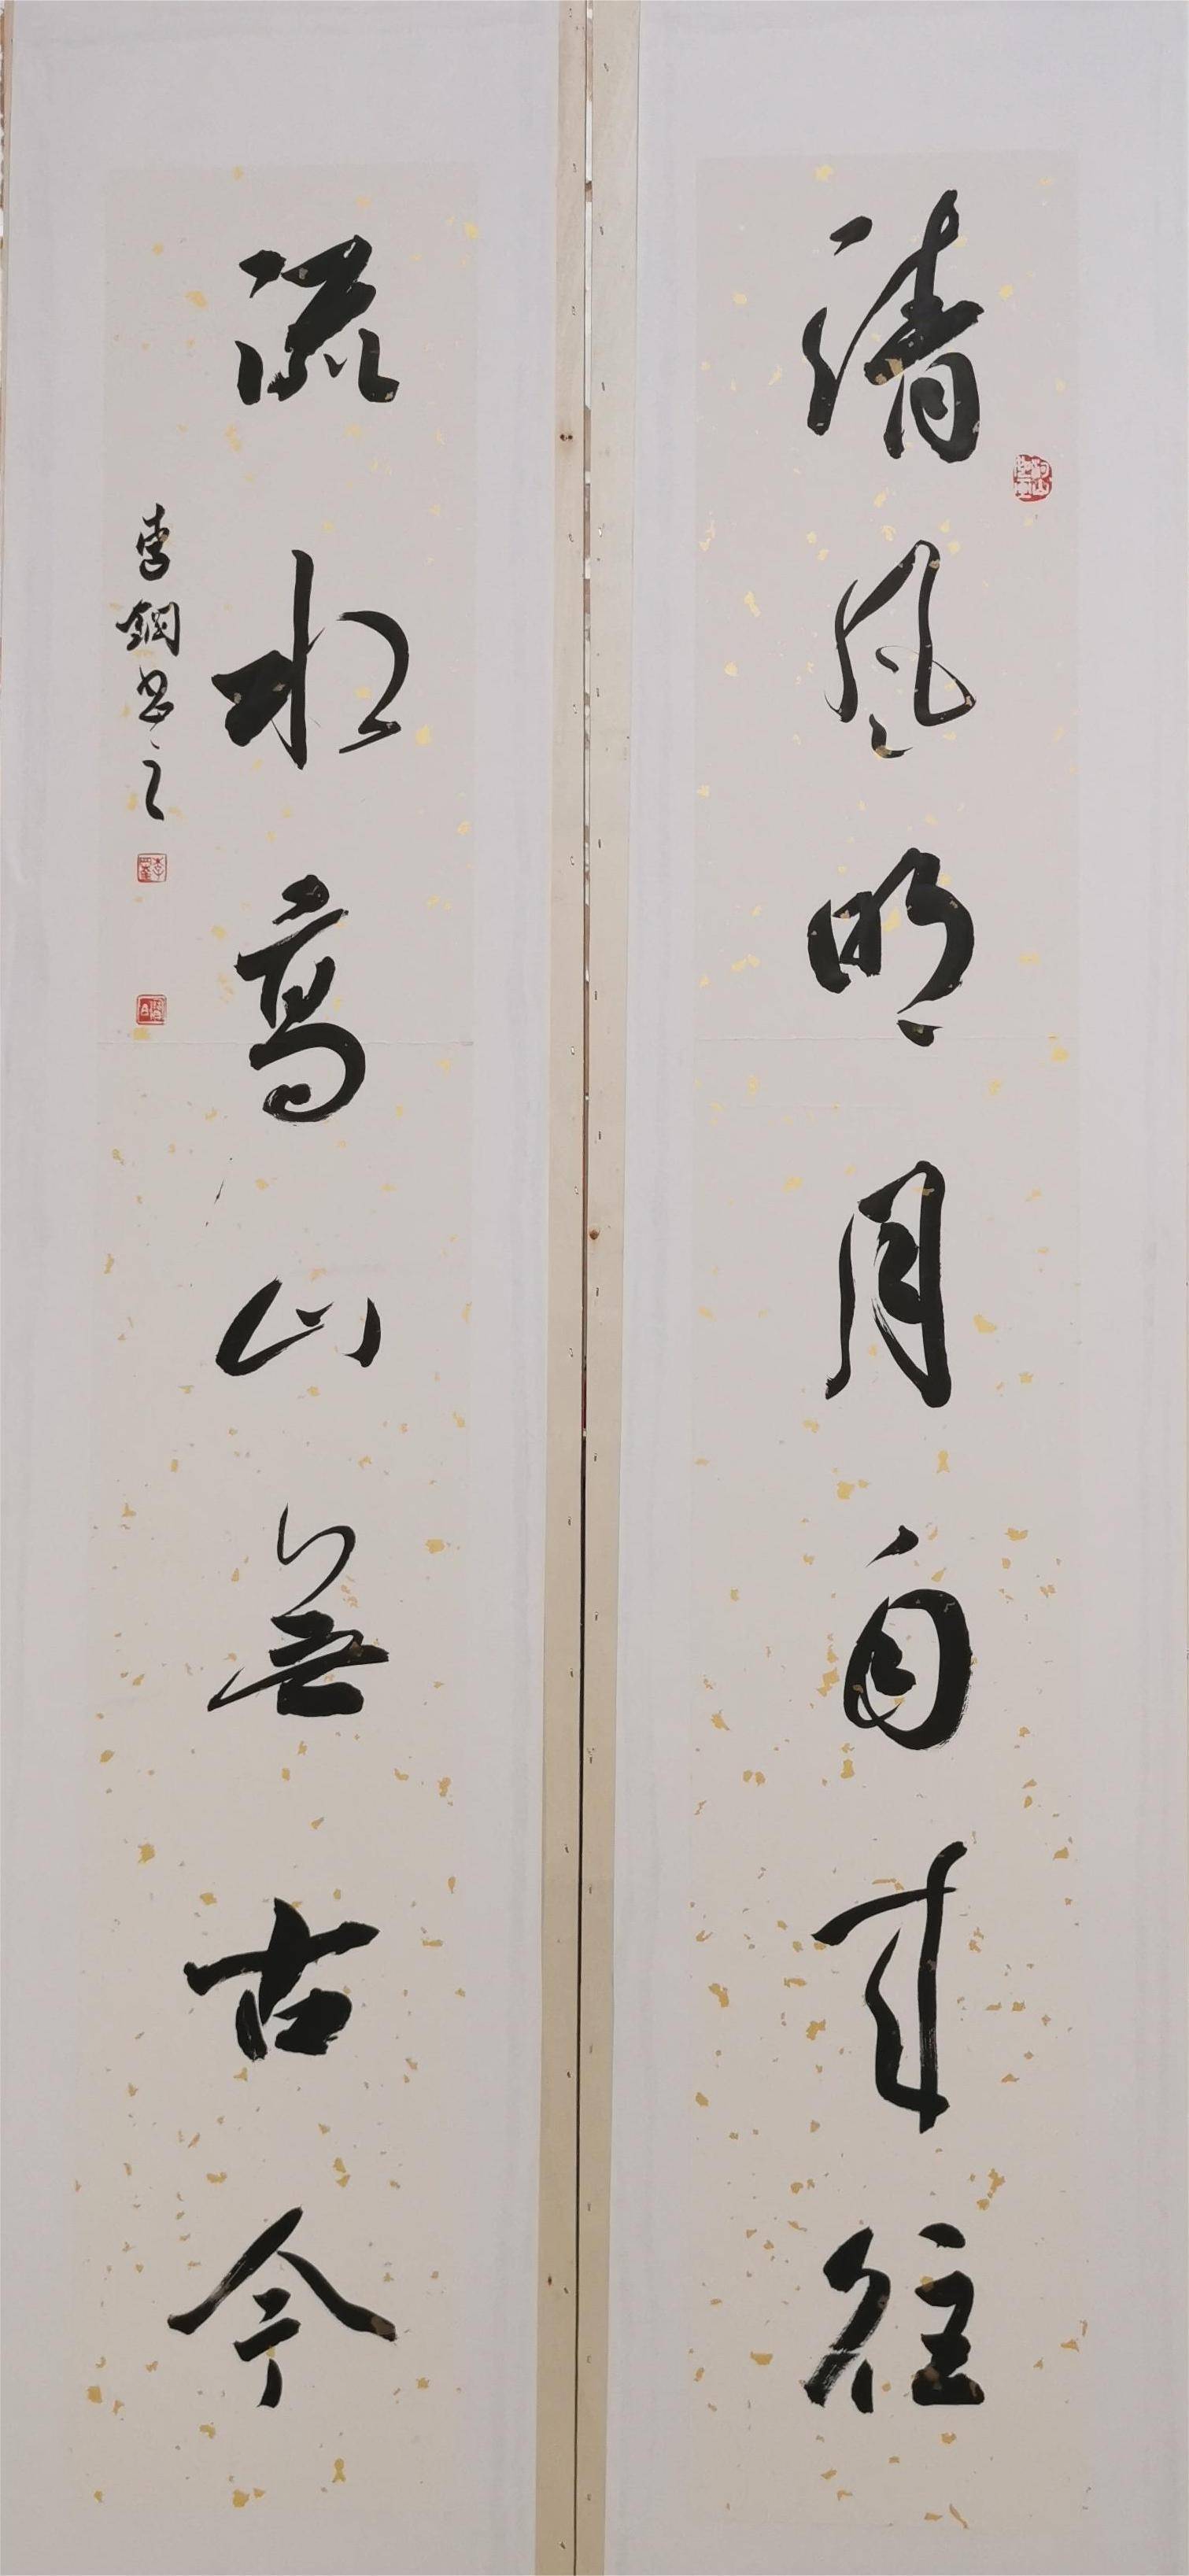 清風明月自来往
流水高山無古今
李鋼書之